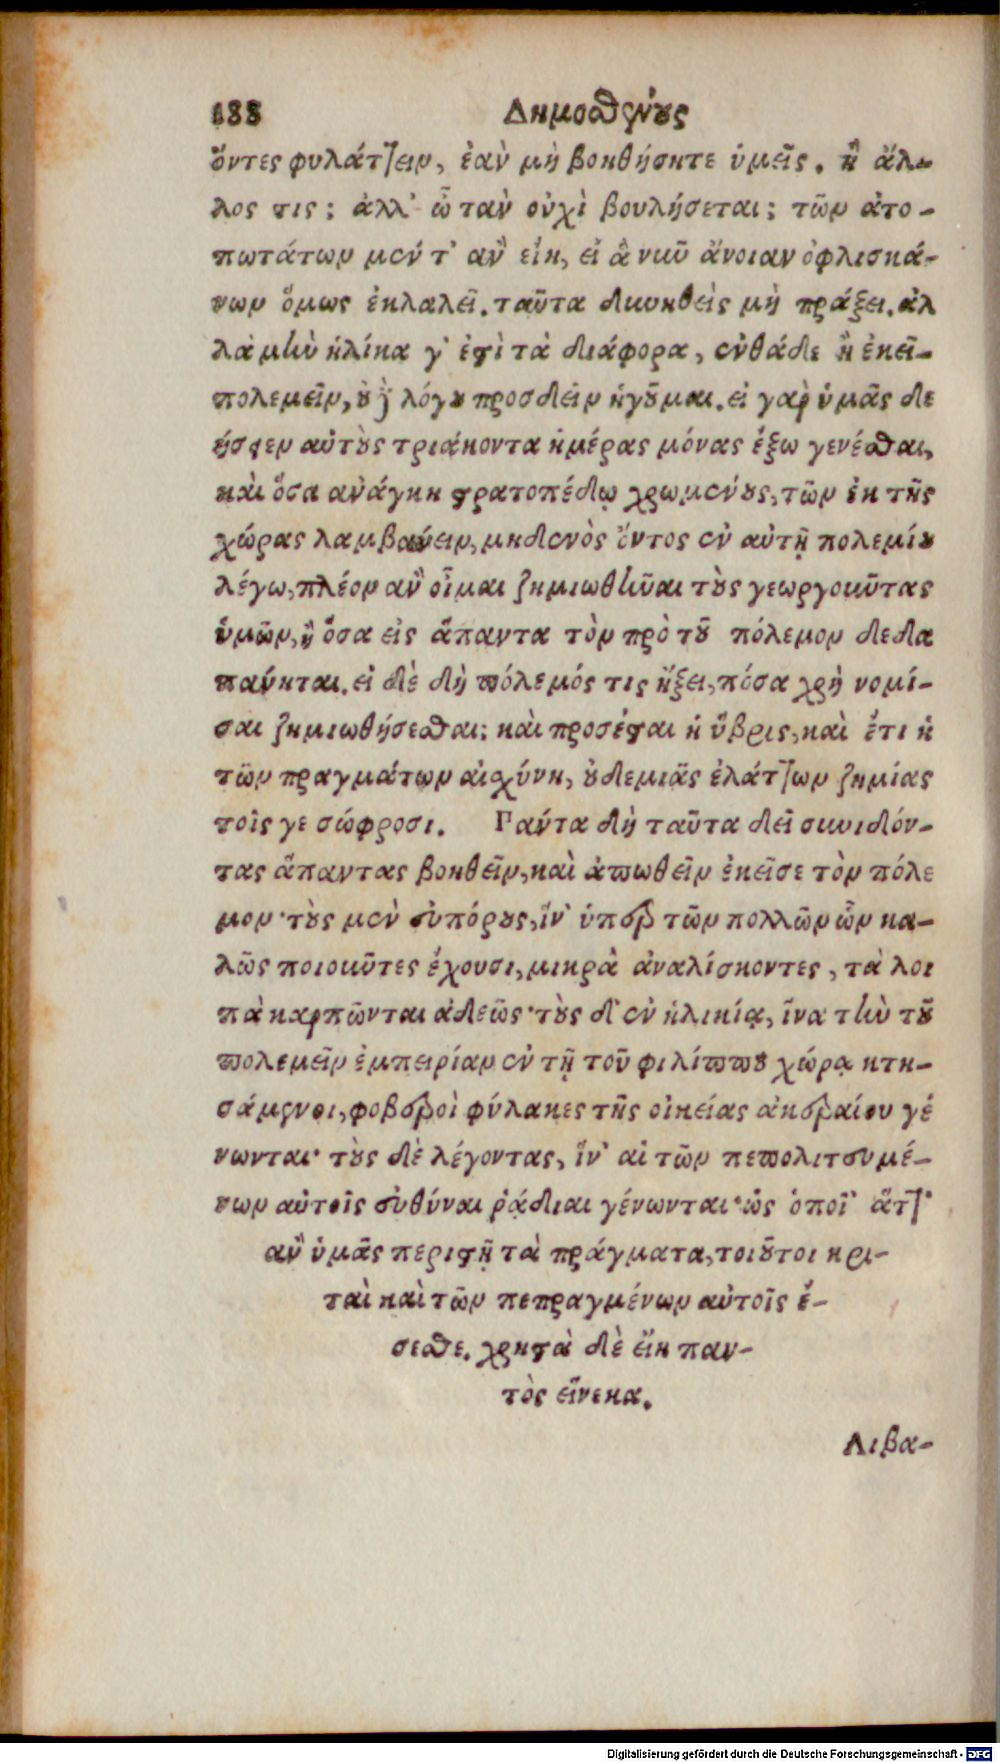 188 Δημοσθένους
ὄντες φυλάττειν, ἐὰν μὴ βοηθήσητε ὑμεῖς. ἢ ἄλ-
λος τις; ἀλλ' ὦ τὰν οὐχὶ βουλήσεται; τῶν ἀτο-
πωτάτων μέν τ' ἂν εἴη, εἰ ἃ νῦν ἄνοιαν ὀφλισκά-
νων ὅμως ἐκλαλεῖ. ταῦτα δυνηθεὶς μὴ πράξει. ἀλ
λὰ μὴν ἡλίκα γ' ἐστὶ τὰ διάφορα, ἐνθάδε ἢ ἐκεῖ-
πολεμεῖν, οὐδὲ λόγου προσδεῖν ἡγοῦμαι. εἰ γὰρ ὑμᾶς δε
ήσειεν αὐτοὺς τριάκοντα ἡμέρας μόνας ἔξω γενέσθαι,
καὶ ὅσα ἀνάγκη στρατοπέδῳ χρωμένους, τῶν ἐκ τῆς
χώρας λαμβάνειν, μηδενὸς ὄντος ἐν αὐτῇ πολεμίου
λέγω, πλέον ἂν οἶμαι ζημιωθῆναι τοὺς γεωργοῦντας
ὑμῶν, ἢ ὅσα εἰς ἅπαντα τὸν πρὸ τοῦ πόλεμον δεδα
πάνηται. εἰ δὲ δὴ πόλεμός τις ἥξει, πόσα χρὴ νομί-
σαι ζημιωθήσεσθαι; καὶ προσέσται ἡ ὕβρις, καὶ ἔτι ἡ
τῶν πραγμάτων αἰσχύνη, οὐδεμιᾶς ἐλάττων ζημίας
τοῖς γε σώφροσι. Πάντα δὴ ταῦτα δεῖ συνιδόν-
τας ἅπαντας βοηθεῖν, καὶ ἀπωθεῖν ἐκεῖσε τὸν πόλε
μον· τοὺς μὲν εὐπόρους, ἵν' ὑπὲρ τῶν πολλῶν ὧν κα-
λῶς ποιοῦντες ἔχουσι, μικρὰ ἀναλίσκοντες, τὰ λοι
πὰ καρπῶνται ἀδεῶς· τοὺς δ' ἐν ἡλικίᾳ, ἵνα τὴν τοῦ
πολεμεῖν ἐμπειρίαν ἐν τῇ τοῦ φιλίππου χώρᾳ κτη-
σάμενοι, φοβεροὶ φύλακες τῆς οἰκείας ἀκεραίου γέ
νωνται· τοὺς δὲ λέγοντας, ἵν' αἱ τῶν πεπολιτευμέ-
νων αὐτοῖς εὐθύναι ῥᾴδιαι γένωνται· ὡς ὁποῖ' ἄττ'
ἂν ὑμᾶς περιστῇ τὰ πράγματα, τοιοῦτοι κρι-
ταὶ καὶ τῶν πεπραγμένων αὐτοῖς ἔ-
σεσθε. χρηστὰ δὲ εἴη παν-
τὸς εἵνεκα.
Λιβα-
Digitalisierung gefördert durch die Deutsche Forschungsgemeinschaft - DFG